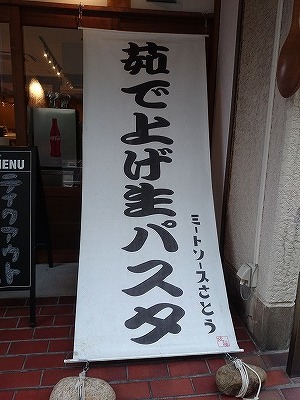 茹で上げ生パスタ
ミートソースさとう
MENU
テイクアウト